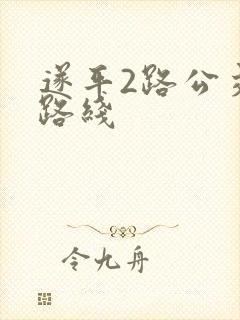 遂平2路公交
路线
令九舟